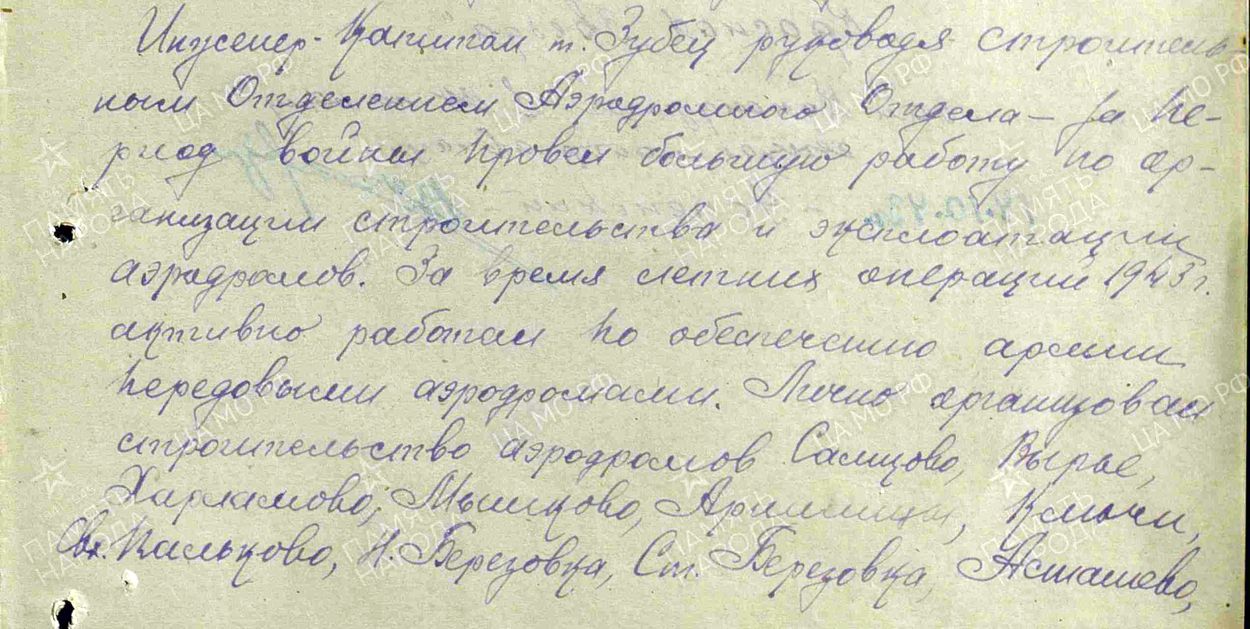 Инженер-Капитан т. Зубец руководя строитель-
ным Отделением Аэродромного Отдела – за пе-
риод войны провел большую работу по ор-
ганизации строительства и эксплоатации
аэродромов. За время летних операций 1943 г.
активно работал по обеспечению армии
передовыми аэродромами. Лично организовал
строительство аэродромов Салцово, Вырье,
Харламово, Мышково, Ключи,
Н. Березовка, Ст. Березовка, Асташево,
14.10.43г
ПАМЯТЬ НАРОДА
ЦА МО РФ